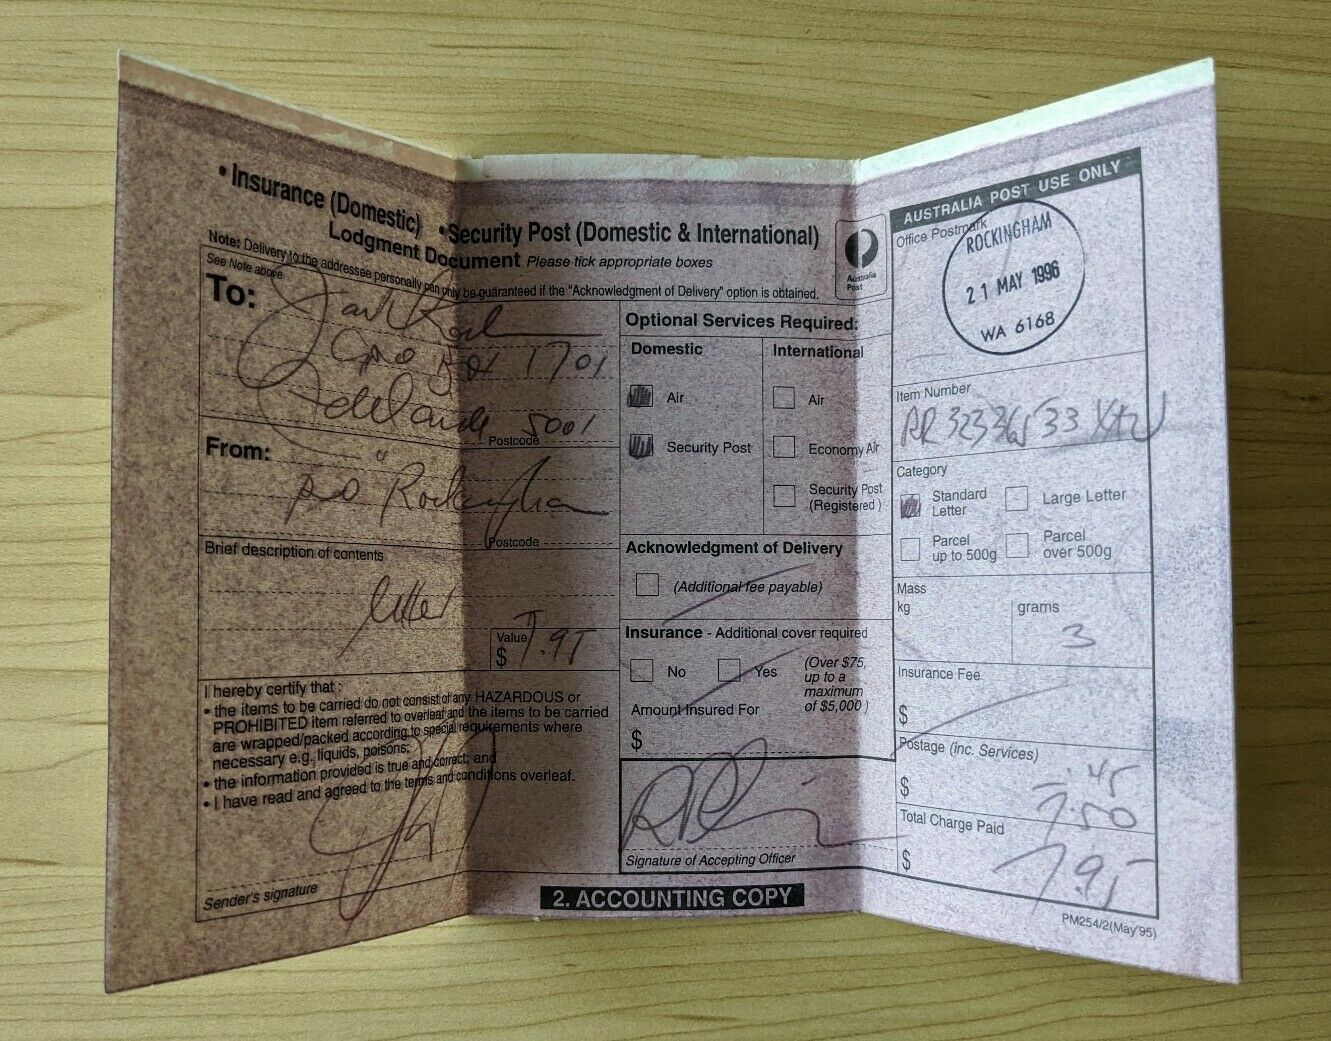 • Insurance (Domestic) • Security Post (Domestic & International)
Lodgment Document Please tick appropriate boxes
Note: Delivery to the addressee personally can only be guaranteed if the "Acknowledgment of Delivery" option is obtained.
Australia
Post
See Note above
To:
GPO Box 1701
Adelaide 5001
Postcode
From:
PO Rockingham
Postcode
Brief description of contents
letter
Value
$ 7.95
I hereby certify that :
• the items to be carried do not consist of any HAZARDOUS or
PROHIBITED item referred to overleaf and the items to be carried
are wrapped/packed according to special requirements where
necessary e.g. liquids, poisons;
• the information provided is true and correct; and
• I have read and agreed to the terms and conditions overleaf.
Sender's signature
Optional Services Required:
Domestic
Air
Security Post
International
Air
Economy Air
Security Post
(Registered )
Acknowledgment of Delivery
(Additional fee payable)
Insurance - Additional cover required
No Yes
(Over $75,
up to a
maximum
of $5,000 )
Amount Insured For
$
Signature of Accepting Officer
2. ACCOUNTING COPY
AUSTRALIA POST USE ONLY
Office Postmark
ROCKINGHAM
21 MAY 1996
WA 6168
Item Number
Category
Standard
Letter
Large Letter
Parcel
up to 500g
Parcel
over 500g
Mass
kg
grams
3
Insurance Fee
$
Postage (inc. Services)
.45
$ 7.50
Total Charge Paid
$ 7.95
PM254/2(May'95)